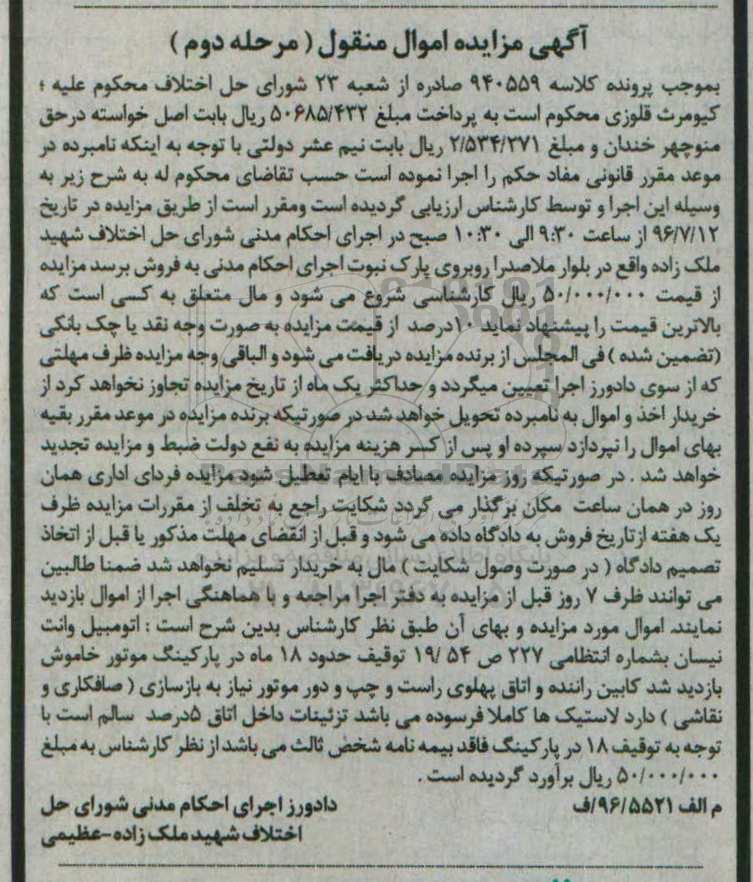 آگهی مزایده اموال منقول ( مرحله دوم )
بموجب پرونده کلاسه ۹۴۰۵۵۹ صادره از شعبه ۲۳ شورای حل اختلاف محکوم علیه ؛
کیومرث قلوزی محکوم است به پرداخت مبلغ ۵۰۶۸۵/۴۳۲ ریال بابت اصل خواسته درحق
منوچهر خندان و مبلغ ۲/۵۳۴/۲۷۱ ریال بابت نیم عشر دولتی با توجه به اینکه نامبرده در
موعد مقرر قانونی مفاد حکم را اجرا نموده است حسب تقاضای محکوم له به شرح زیر به
وسیله این اجرا و توسط کارشناس ارزیابی گردیده است ومقرر است از طریق مزایده در تاریخ
۹۶/۷/۱۲ از ساعت ۹:۳۰ الی ۱۰:۳۰ صبح در اجرای احکام مدنی شورای حل اختلاف شهید
ملک زاده واقع در بلوار ملاصدرا روبروی پارک نبوت اجرای احکام مدنی به فروش برسد مزایده
از قیمت ۵۰/۰۰۰/۰۰۰ ریال کارشناسی شروع می شود و مال متعلق به کسی است که
بالاترین قیمت را پیشنهاد نماید ۱۰درصد از قیمت مزایده به صورت وجه نقد یا چک بانکی
(تضمین شده ) فی المجلس از برنده مزایده دریافت می شود و الباقی وجه مزایده ظرف مهلتی
که از سوی دادورز اجرا تعیین میگردد و حداکثر یک ماه از تاریخ مزایده تجاوز نخواهد کرد از
خریدار اخذ و اموال به نامبرده تحویل خواهد شد در صورتیکه برنده مزایده در موعد مقرر بقیه
بهای اموال را نپردازد سپرده او پس از کسر هزینه مزایده به نفع دولت ضبط و مزایده تجدید
خواهد شد . در صورتیکه روز مزایده مصادف با ایام تعطیل شود مزایده فردای اداری همان
روز در همان ساعت مکان برگذار می گردد شکایت راجع به تخلف از مقررات مزایده ظرف
یک هفته ازتاریخ فروش به دادگاه داده می شود و قبل از انقضای مهلت مذکور یا قبل از اتخاذ
تصمیم دادگاه ( در صورت وصول شکایت ) مال به خریدار تسلیم نخواهد شد ضمنا طالبین
می توانند ظرف ۷ روز قبل از مزایده به دفتر اجرا مراجعه و با هماهنگی اجرا از اموال بازدید
نمایند. اموال مورد مزایده و بهای آن طبق نظر کارشناس بدین شرح است : اتومبیل وانت
نیسان بشماره انتظامی ۲۲۷ ص ۵۴ /۱۹ توقیف حدود ۱۸ ماه در پارکینگ موتور خاموش
بازدید شد کابین راننده و اتاق پهلوی راست و چپ و دور موتور نیاز به بازسازی ( صافکاری و
نقاشی ) دارد لاستیک ها کاملا فرسوده می باشد تزئینات داخل اتاق ۵درصد سالم است با
توجه به توقیف ۱۸ در پارکینگ فاقد بیمه نامه شخص ثالث می باشد از نظر کارشناس به مبلغ
۵۰/۰۰۰/۰۰۰ ریال برآورد گردیده است .
م الف ۹۶/۵۵۲۱/ف
دادورز اجرای احکام مدنی شورای حل
اختلاف شهید ملک زاده-عظیمی